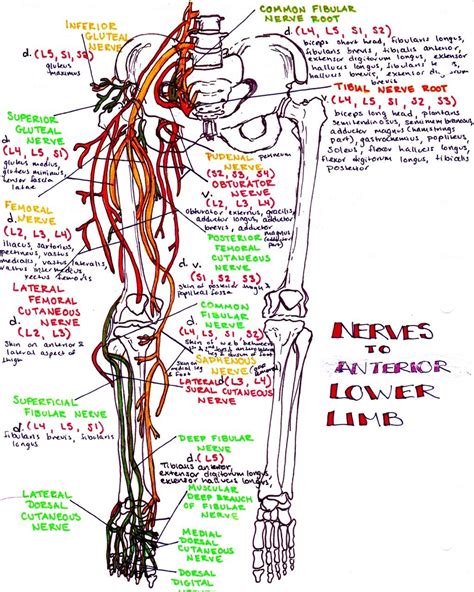 INFERIOR
GLUTEAL
NERVE
d. (L5, S1, S2)
gluteus
maximus
COMMON FIBULAR
NERVE ROOT
d. (L4, L5, S1, S2)
biceps short head, fibularis longus,
fibularis brevis, tibialis anterior,
extensor digitorum longus, extensor
hallucis longus, fibularis
hallucis brevis, extensor
brevis
TIBIAL NERVE ROOT
(L4, L5, S1, S2, S3)
biceps long head, plantaris
semitendinosus, semimembranosus,
adductor magnus (hamstrings
part), gastrocnemius, popliteus,
soleus, flexor hallucis longus,
flexor digitorum longus, tibialis
posterior
SUPERIOR
GLUTEAL
NERVE
d.
(L4, L5, S1)
gluteus medius,
gluteus minimus,
tensor fascia
latae
PUDENAL perineum
NERVE
(S2, S3, S4)
OBTURATOR
NERVE
v.
(L2, L3, L4)
obturator externus, gracilis,
adductor longus, adductor
brevis, adductor
magnus
FEMORAL
NERVE
d.
(L2, L3, L4)
iliacus, sartorius,
pectineus, vastus
medialis, vastus lateralis,
vastus intermedius
rectus femoris
POSTERIOR
FEMORAL
CUTANEOUS
NERVE
v. (S1, S2, S3)
skin of posterior thigh &
popliteal fossa
LATERAL
FEMORAL
CUTANEOUS
NERVE
d.
(L2, L3)
skin on anterior &
lateral aspect of
thigh
COMMON
FIBULAR
NERVE
(L4, L5, S1, S2)
skin of web between
SAPHENOUS
NERVE
skin on
medial leg
& foot
(L3, L4)
LATERAL
SURAL CUTANEOUS
NERVE
NERVES
TO
ANTERIOR
LOWER
LIMB
SUPERFICIAL
FIBULAR NERVE
d. (L4, L5, S1)
fibularis brevis, fibularis
longus
DEEP FIBULAR
NERVE
d. (L5)
Tibialis anterior,
extensor digitorum longus,
extensor hallucis longus,
MUSCULAR
DEEP BRANCH
OF FIBULAR
NERVE
LATERAL
DORSAL
CUTANEOUS
NERVE
MEDIAL
DORSAL
CUTANEOUS
NERVE
DORSAL
DIGITAL